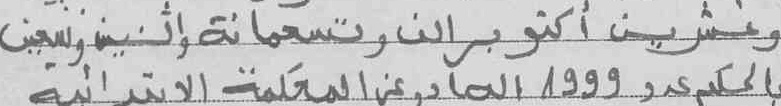 وعشرين أكتوبر الف وتسعمائة واثنين وتسعين
بالحكم عدد 1999 الصادر عن المحكمة الابتدائية